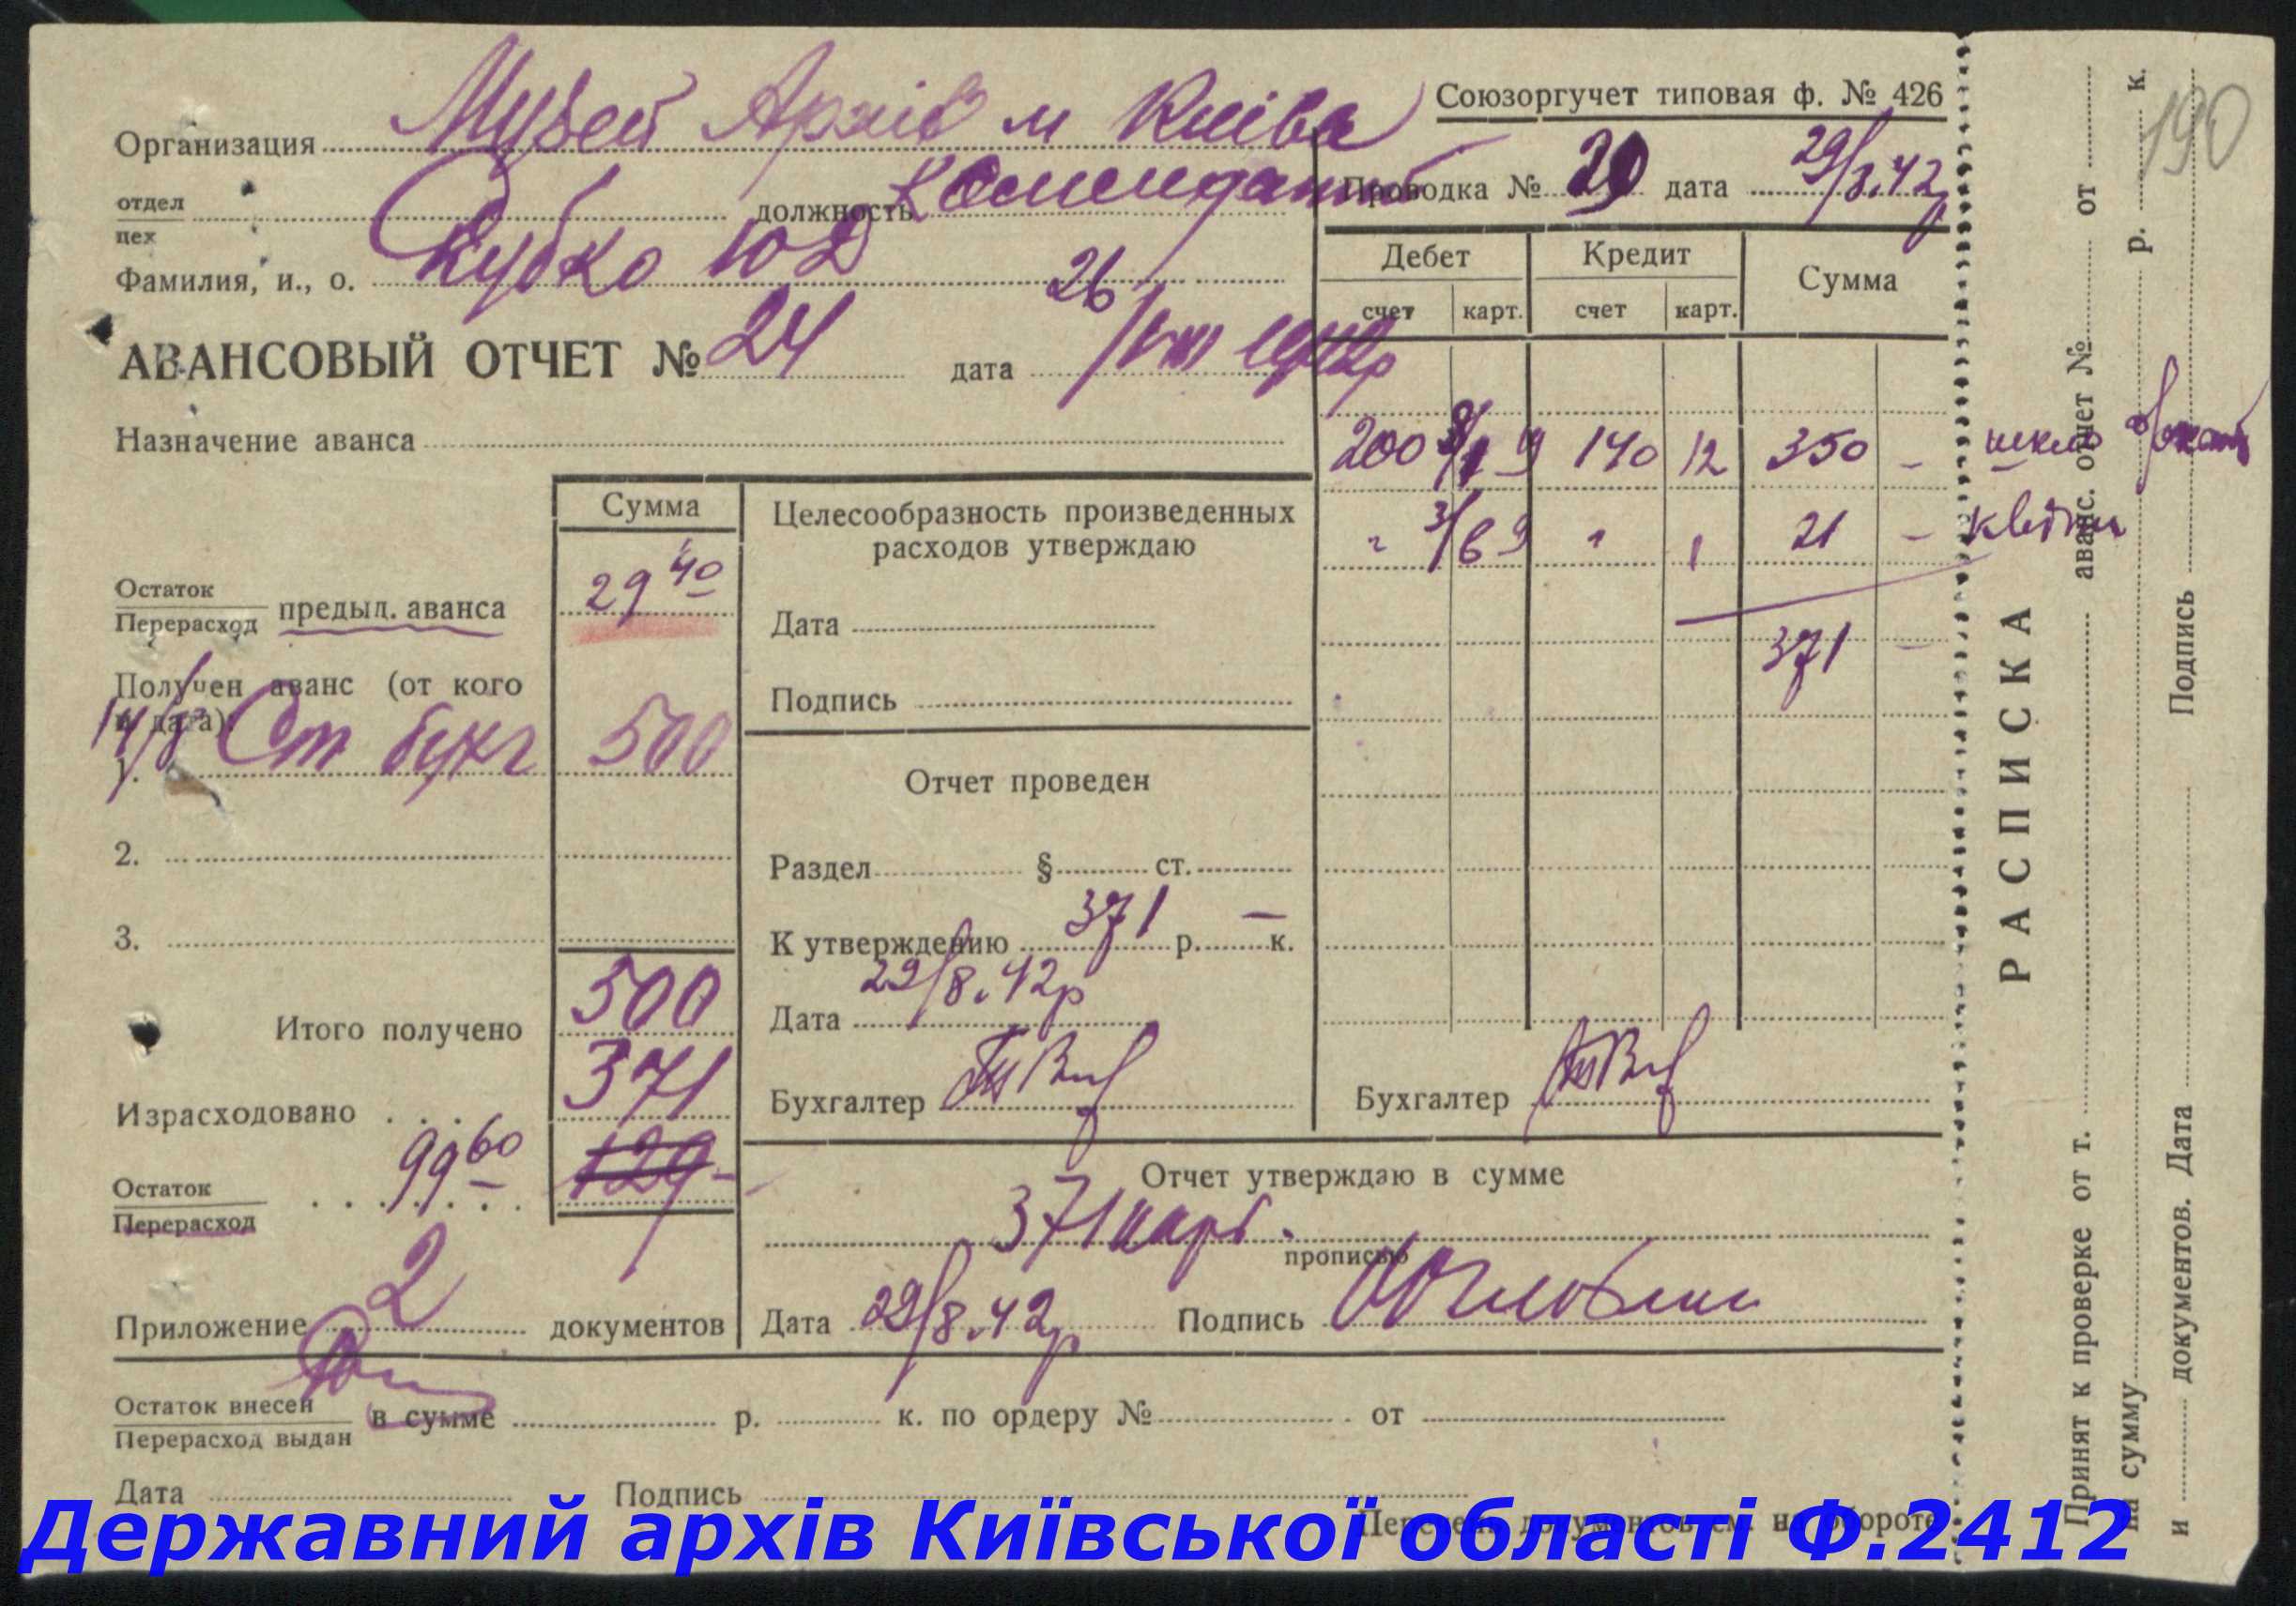 Союзоргучет типовая ф. № 426
190
Организация Музей Архів м Київа
Проводка № 29 дата 29/8.42р
отдел
цех
должность Комендант
Фамилия, и., о. Скубко Ю Д
Дебет Кредит Сумма
счет карт. счет карт.
АВАНСОВЫЙ ОТЧЕТ № 24 дата 26/VIII 1942р
Назначение аванса
200 9 140 12 350 –
" 3/6 9 " 1 21 – квітки
371 –
Сумма
Остаток
Перерасход предыд. аванса 29 40
Получен аванс (от кого
и дата):
14/8
1. Ст бухг 500
2.
3.
Итого получено 500
Израсходовано . . . 371
Остаток
Перерасход 99 60 129 –
Приложение 2 документов
Целесообразность произведенных
расходов утверждаю
Дата
Подпись
Отчет проведен
Раздел § ст.
К утверждению 371 р. – к.
Дата 29/8.42р
Бухгалтер
Бухгалтер
Отчет утверждаю в сумме
371 карб.
прописью
Дата 29/8.42р Подпись
Остаток внесен
Перерасход выдан в сумме р. к. по ордеру № от
Дата Подпись
Перечень документов см. на обороте
РАСПИСКА
Принят к проверке от т. аванс. отчет № от
на сумму р. к.
и документов. Дата Подпись
Державний архів Київської області Ф.2412